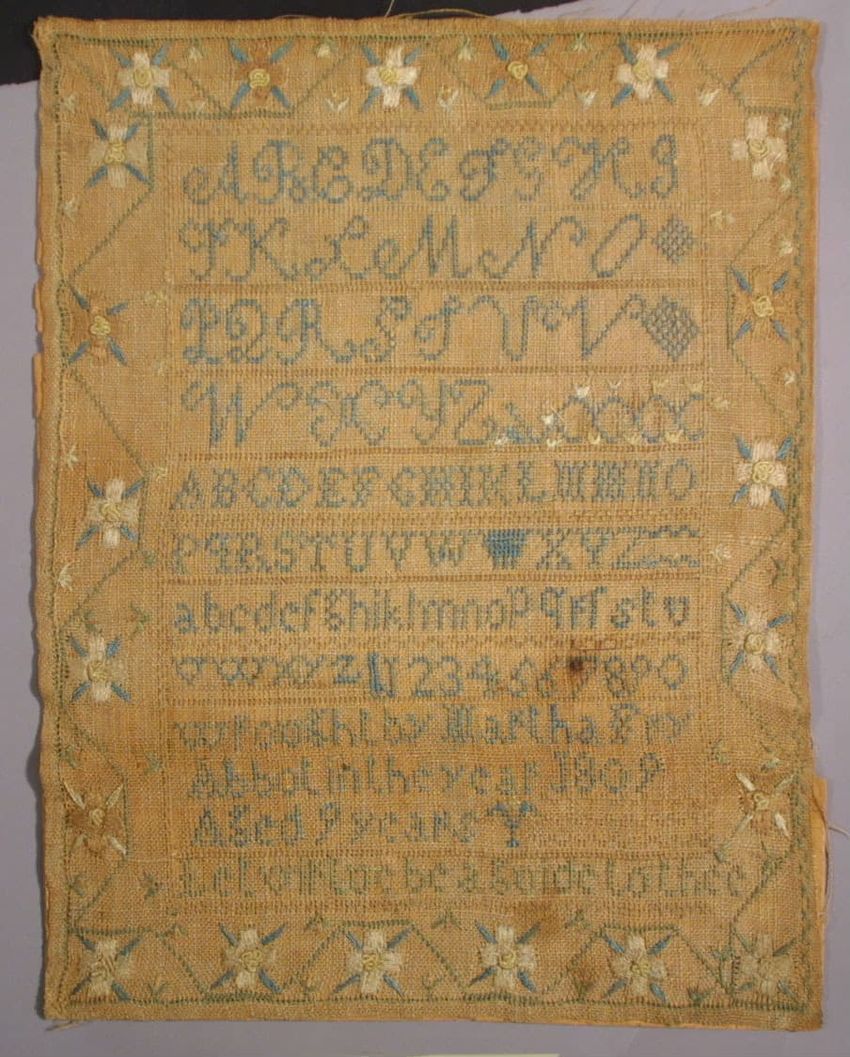 ABCDEFGHI
JKLMNO
PQRSTUV
WXYZ
ABCDEFGHIKLMNO
PQRSTUVWXYZ
abcdefghiklmnopqrsstu
vwxyz1234567890
wrought by Martha Fry
Abbot in the year 1809
Aged 9 years
Let virtue be a Guide to thee